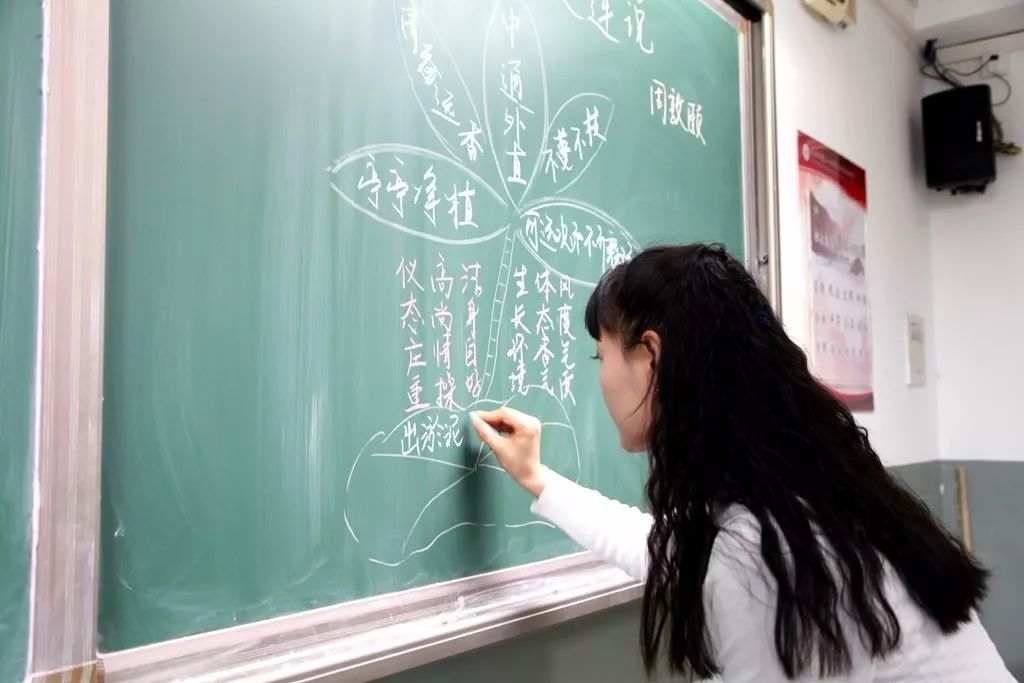 莲说
周敦颐
清益远香
中通外直
不蔓不枝
亭亭净植
可远观而不可亵
仪态庄重
高尚情操
洁身自好
生长环境
体态香气
风度
出淤泥